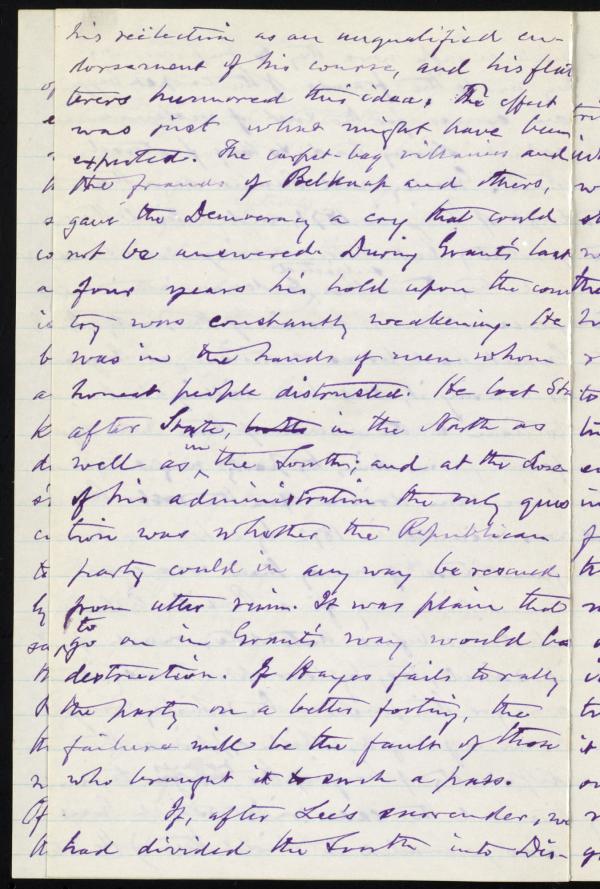 his reëlection as an unqualified en-
dorsement of his course, and his flat
terers humored this idea. The effect
was just what might have been
expected. The carpet-bag villainies and
the frauds of Belknap and others,
gave the Democracy a cry that could
not be answered. During Grant's last
four years his hold upon the coun
try was constantly weakening. He
was in the hands of men whom
honest people distrusted. He lost Sta
after State, both in the North as
well as in the South; and at the close
of his administration the only ques
tion was whether the Republican
party could in any way be rescued
from utter ruin. It was plain that
to go on in Grant's way would be
destruction. If Hayes fails to rally
the party on a better footing, the
failure will be the fault of those
who brought it to such a pass.
If, after Lee's surrender, we
had divided the South into Dis-